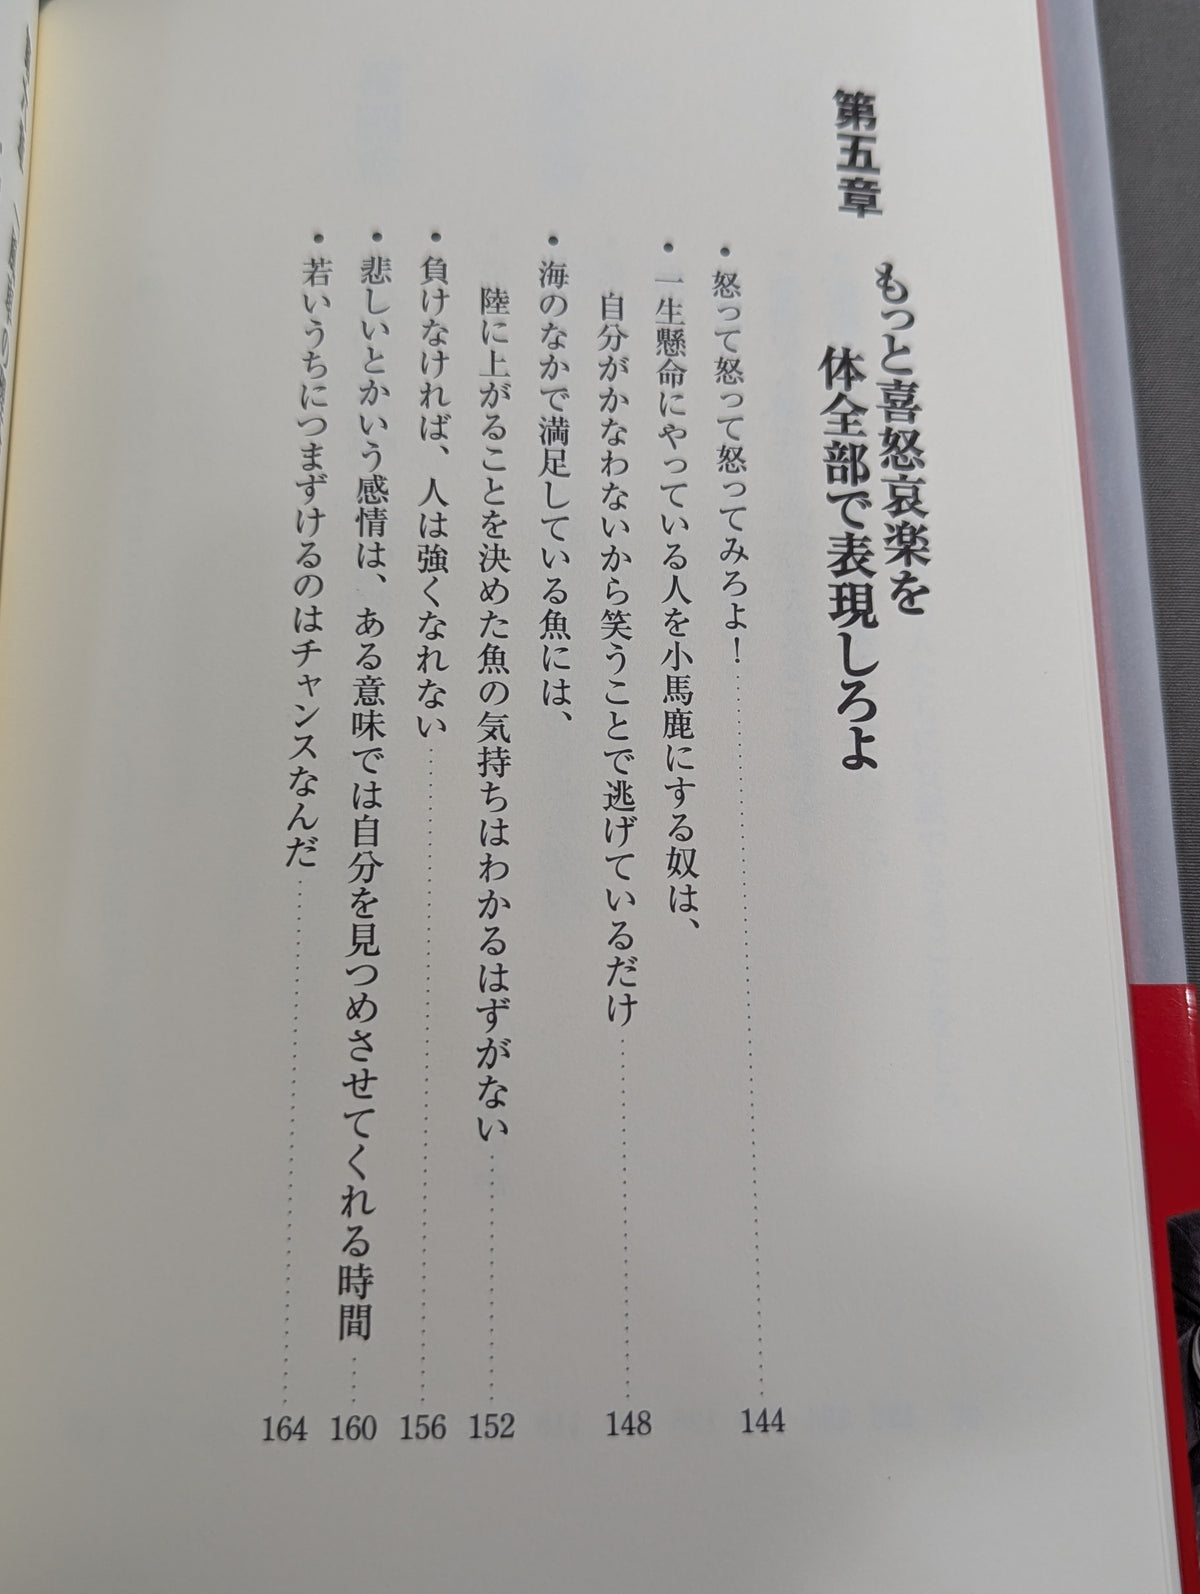 第五章
もっと喜怒哀楽を
体全部で表現しろよ
・怒って怒って怒ってみろよ！……144
・一生懸命にやっている人を小馬鹿にする奴は、
自分がかなわないから笑うことで逃げているだけ……148
・海のなかで満足している魚には、
陸に上がることを決めた魚の気持ちはわかるはずがない……152
・負けなければ、人は強くなれない……156
・悲しいとかいう感情は、ある意味では自分を見つめさせてくれる時間……160
・若いうちにつまずけるのはチャンスなんだ……164